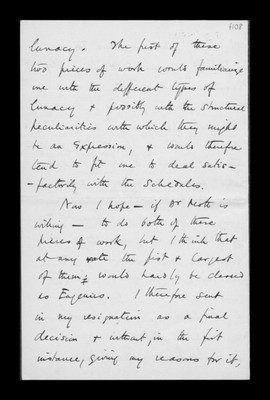 6108
lunacy. The first of these
two pieces of work would familiarize
me with the different types of
lunacy & possibly with the structural
peculiarities with which they might
be an expression, & would therefore
tend to fit me to deal satis-
-factorily with the schedules.
Now I hope – if Dr Mott is
willing – to do both of these
pieces of work, but I think that
at any rate the first & largest
of them would hardly be classed
as Eugenics. I therefore sent
in my resignation as a final
decision & without, in the first
instance, giving my reasons for it,